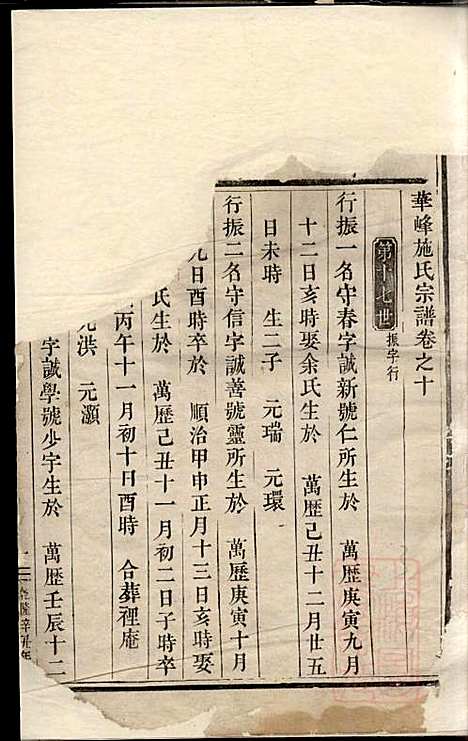 華峰施氏宗譜卷之十
第十七世 振字行
行振一名守春字誠新號仁所生於 萬歷庚寅九月
十二日亥時娶余氏生於 萬歷己丑十二月廿五
日未時 生二子 元瑞 元環
行振二名守信字誠善號靈所生於 萬歷庚寅十月
日酉時卒於 順治甲申正月十三日亥時娶
氏生於 萬歷己丑十一月初二日子時卒
丙午十一月初十日酉時 合葬裡庵
洪 元灝
字誠學號少字生於 萬歷壬辰十二